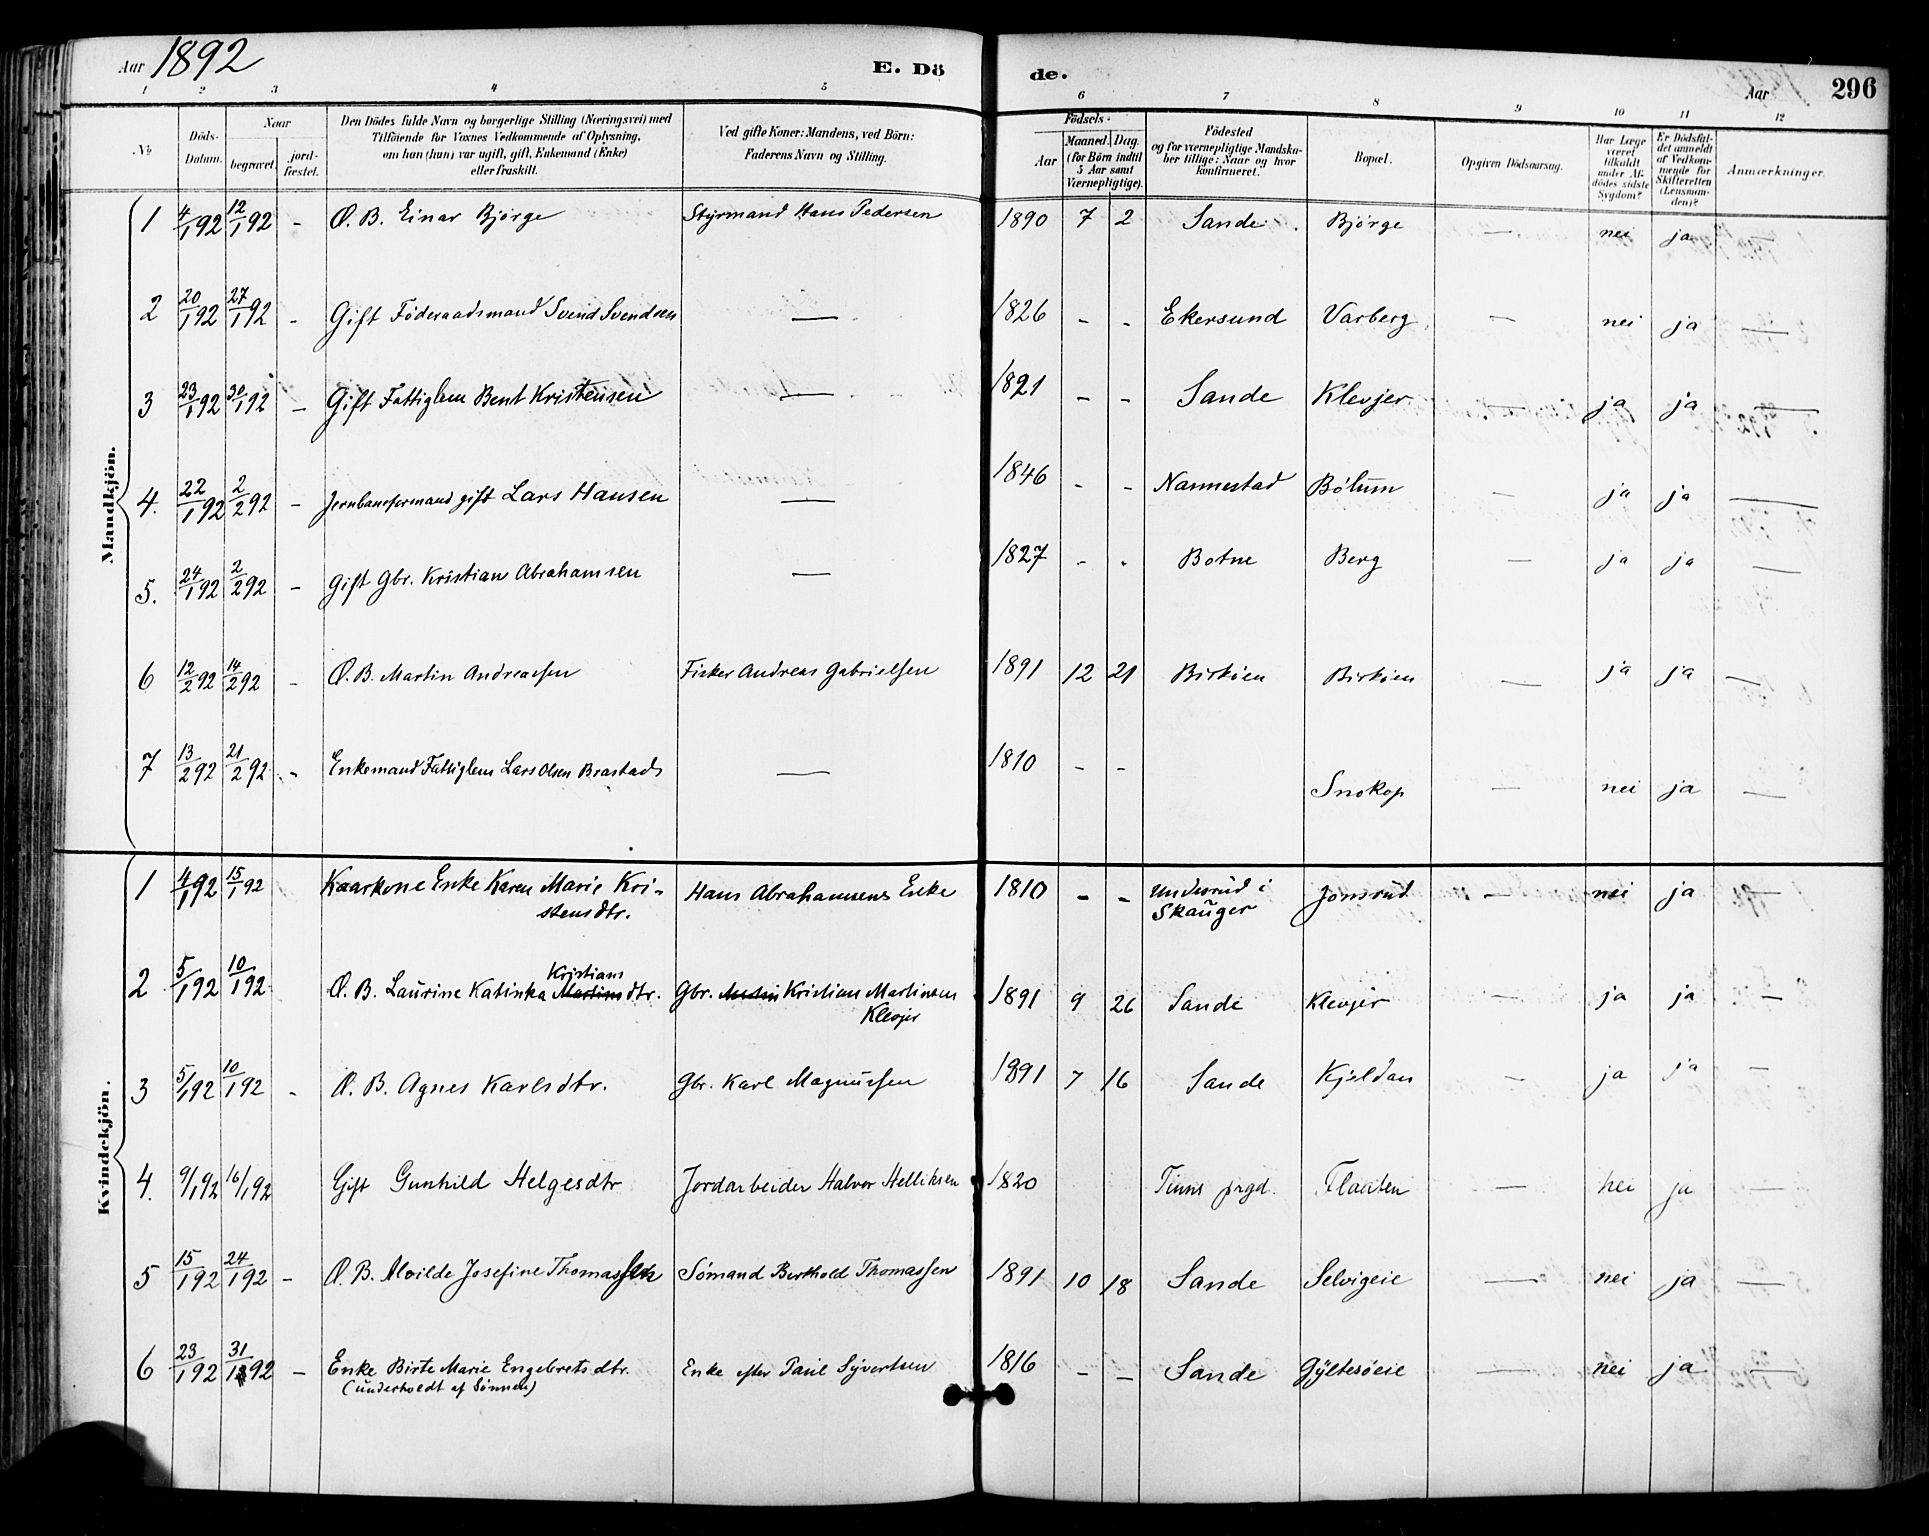 Aar 1892 E. Dö de. Aar 296
1 2 3 4 5 6 7 8 9 10 11 12
No
Döds-Datum.
Naar
begravet.
jord-fæstet.
Den Dödes fulde Navn og borgerlige Stilling (Næringsvei) med
Tilföiende for Voxnes Vedkommende af Oplysning,
om han (hun) var ugift, gift, Enkemand (Enke)
eller fraskilt.
Ved gifte Koner: Mandens, ved Börn:
Faderens Navn og Stilling.
Födsels-
Aar
Maaned. Dag.
(for Börn indtil
5 Aar samt
Værnepligtige).
Födested
og for værnepligtige Mandska-
ber tillige: Naar og hvor
konfirmeret.
Bopæl.
Opgiven Dödsaarsag.
Har Læge
været
tilkaldt
under Af-
dödes sidste
Sygdom?
Er Dödsfal-
det anmeldt
af Vedkom-
mende for
Skifteretten
(Lensman-
den)?
Anmærkninger.
Mandkjön.
1 4/1 92 12/1 92 - Ø. B. Einar Bjørge Styrmand Hans Pedersen 1890 7 2 Sande Bjørge — nei ja —
2 20/1 92 27/1 92 - Gift Föderaadsmand Svend Svendsen — 1826 - - Ekersund Varberg — nei ja —
3 23/1 92 30/1 92 - Gift Fattiglem Bent Kristensen — 1821 - - Sande Klevjer — ja ja —
4. 22/1 92 2/2 92 - Jernbaneformand gift Lars Hansen — 1846 - - Nannestad Bølum — ja ja —
5. 24/1 92 2/2 92 - Gift Gbr. Kristian Abrahamsen — 1827 - - Botne Berg — ja ja —
6 12/2 92 14/2 92 - Ø. B. Martin Andreassen Fisker Andreas Gabrielsen 1891 12 21 Birköen Birköen — ja ja —
7 13/2 92 21/2 92 - Enkemand Fattiglem Lars Olsen Brastads — 1810 - - Snekop — nei ja —
Kvindekjön.
1 4/1 92 15/1 92 Kaarkone Enke Karen Marie Kri-
stensdtr. Hans Abrahamsens Enke 1810 - - Undesrud i
Skauger Jonsrud — nei ja —
2 5/1 92 10/1 92 Ø. B. Laurine Katinka Martinsdtr. Gbr. Kristian Martinsen 1891 9 26 Sande Klevjer — ja ja —
Kristians
Klevjer
3 5/1 92 10/1 92 - Ø. B. Agnes Karlsdtr. Gbr. Karl Magnussen 1891 7 16 Sande Kjeldan — ja ja —
4. 9/1 92 16/1 92 Gift Gunhild Helgesdtr Jordarbeider Halvor Helliksen 1820 Tinns prgd. Flaaten — nei ja —
5 15/1 92 24/1 92 - Ø. B. Alvilde Josefine Thomassen Sömand Berthold Thomassen 1891 10 18 Sande Selvigeie — nei ja —
6 23/1 92 31/1 92 - Enke Birte Marie Engebretsdtr. Enke efter Paul Syvertsen 1816 - - Sande Gyltesøeie — nei ja —
(underholdt af Sønnen)